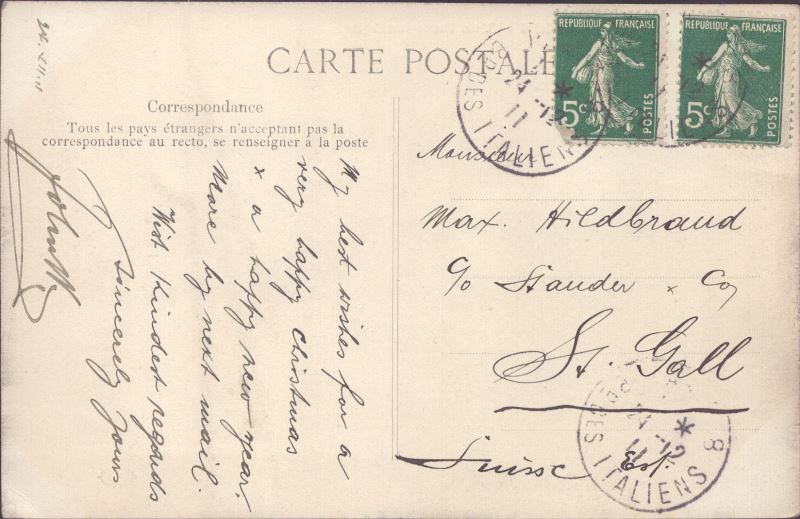 CARTE POSTALE
Correspondance
Tous les pays étrangers n'acceptant pas la
correspondance au recto, se renseigner à la poste
My best wishes for a
very happy Christmas
x a happy new year.
More by next mail.
With kindest regards
Sincerely Yours
John W
REPUBLIQUE FRANÇAISE
5c POSTES
REPUBLIQUE FRANÇAISE
5c POSTES
24 -12
11
BD DES ITALIENS
Monsieur
Max. Hildbrand
c/o Stauder x Co
St. Gall
Suisse Est.
24 -12
11
DES ITALIENS 8